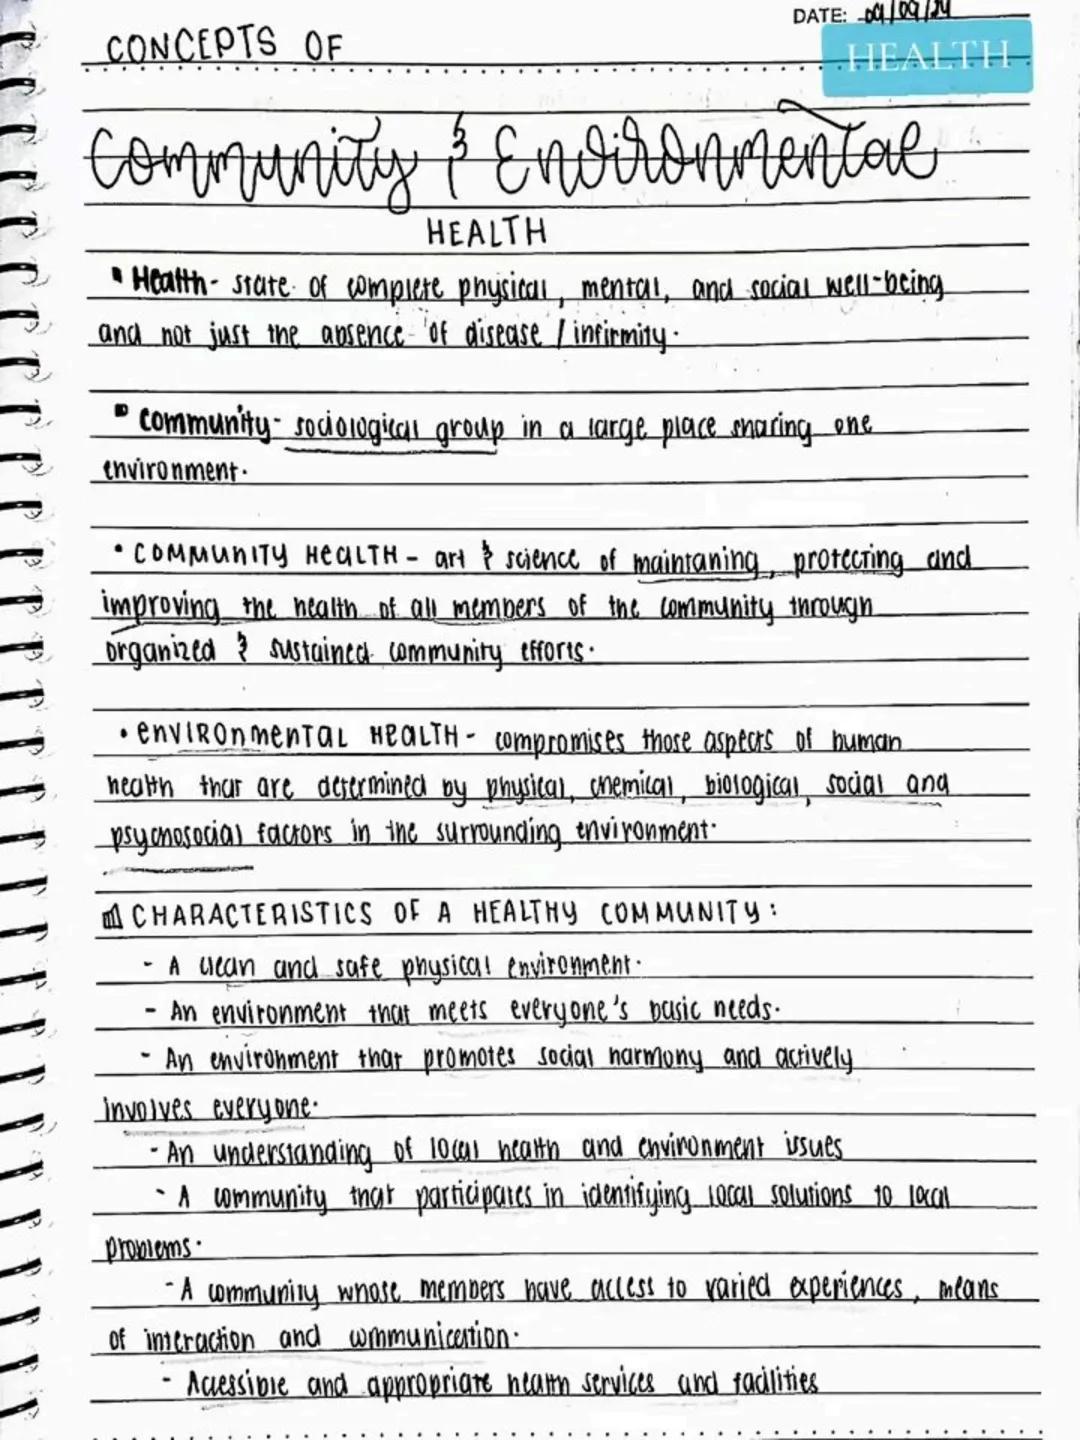 DATE: 09/09/24
CONCEPTS OF
HEALTH
Community & Environmental
HEALTH
▪ Health - state of complete physical, mental, and social well-being
and not just the absence of disease / infirmity.
▪ Community - sociological group in a large place sharing one
environment.
• COMMUNITY HEALTH - art & science of maintaning, protecting and
improving the health of all members of the community through
organized & sustained community efforts.
• ENVIRONMENTAL HEALTH - compromises those aspects of human
health that are determined by physical, chemical, biological, social and
psychosocial factors in the surrounding environment.
CHARACTERISTICS OF A HEALTHY COMMUNITY:
- A clean and safe physical environment.
- An environment that meets everyone's basic needs.
- An environment that promotes social harmony and actively
involves everyone.
- An understanding of local health and environment issues
- A community that participates in identifying local solutions to local
problems.
- A community whose members have access to varied experiences, means
of interaction and communication.
- Acessible and appropriate health services and facilities